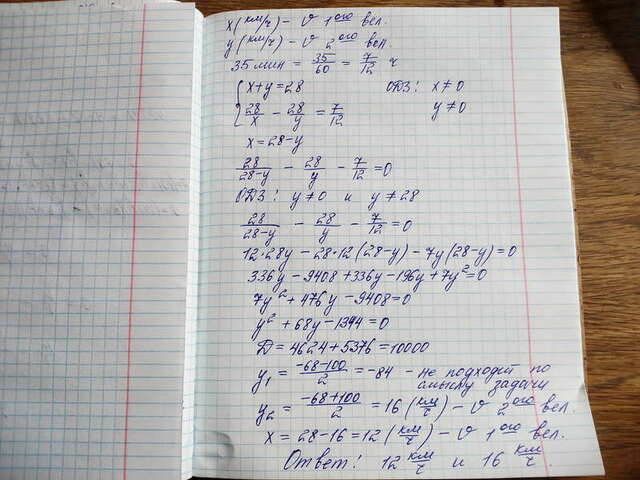 x(км/ч) – v 1ого вел.
y(км/ч) – v 2ого вел.
35 мин = 35/60 = 7/12 ч
{ x+y=28 ОДЗ: x≠0
{ 28/x – 28/y = 7/12 y≠0
x=28-y
28/(28-y) – 28/y – 7/12 =0
ОДЗ: y≠0 и y≠28
28/(28-y) – 28/y – 7/12 =0
12*28y – 28*12(28-y) – 7y(28-y)=0
336y – 9408+336y-196y+7y²=0
7y²+476y-9408=0
y²+68y-1344=0
D=4624+5376=10000
y₁ = (-68-100)/2 = -84 – не подходит по
смыслу задачи
y₂ = (-68+100)/2 = 16 (км/ч) – v 2ого вел.
x = 28-16=12 (км/ч) – v 1ого вел.
Ответ: 12 км/ч и 16 км/ч.